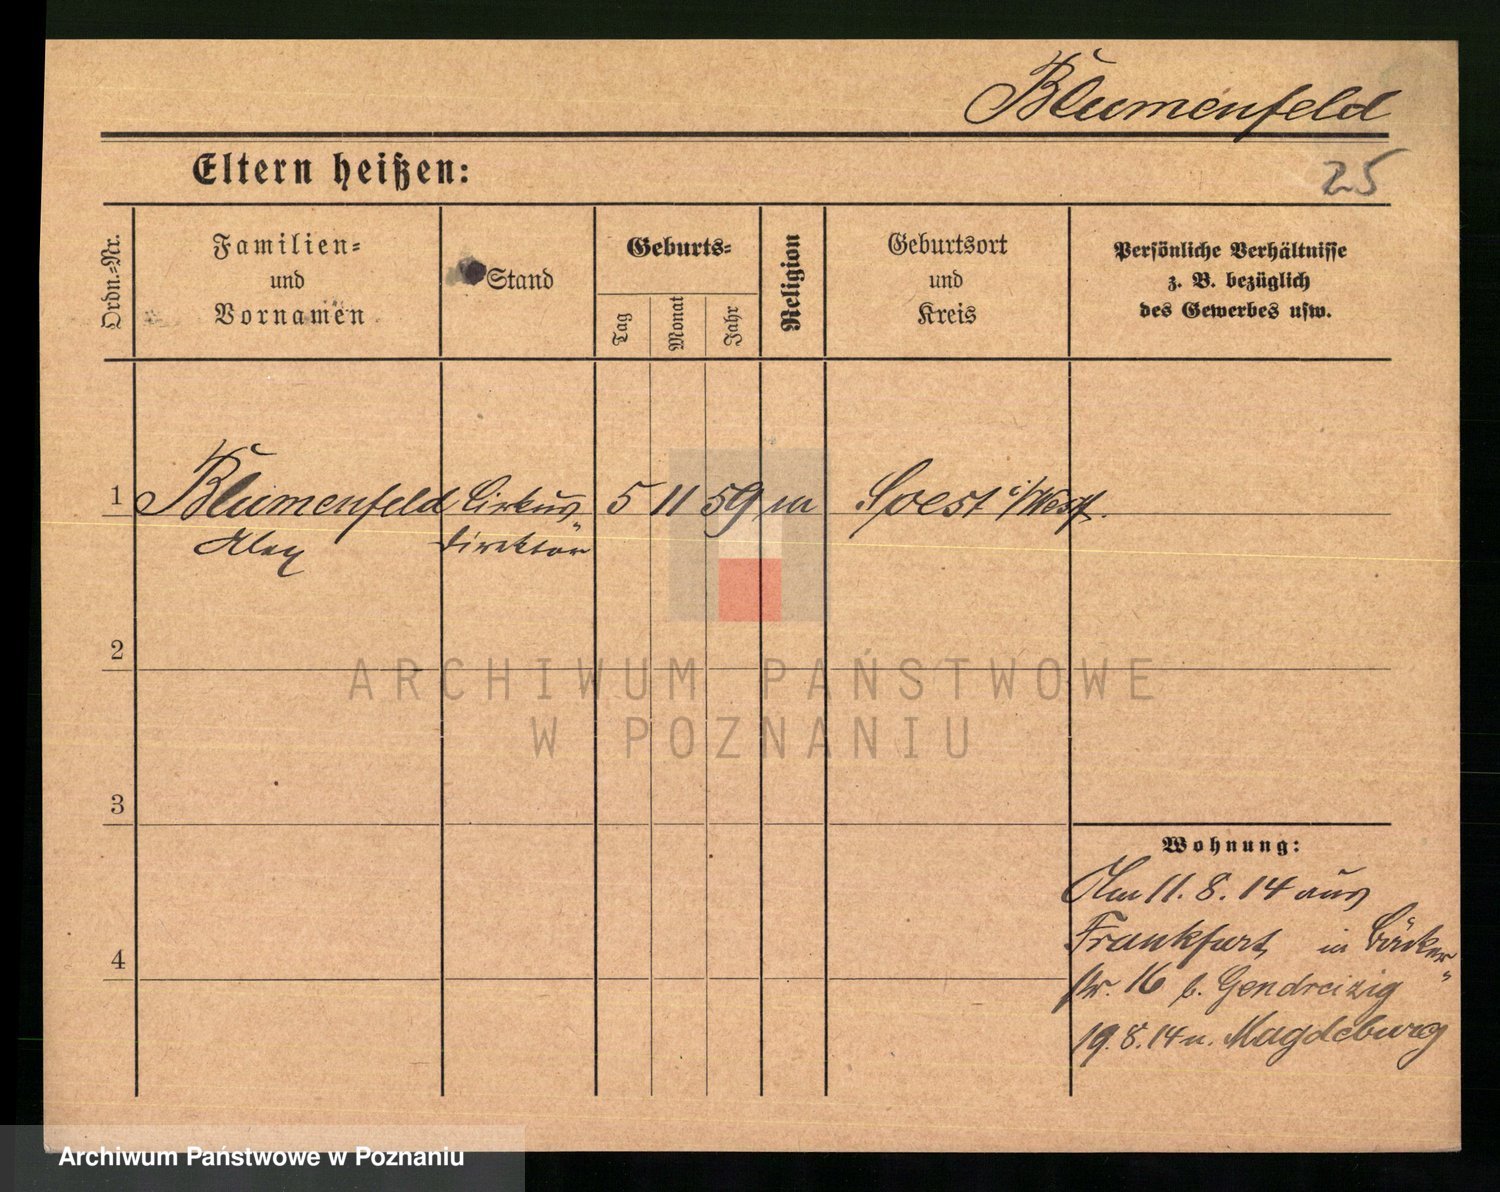 Blumenfeld
25
Eltern heißen:
Ordn.-Nr.
Familien-
und
Vornamen
Stand
Geburts-
Tag
Monat
Jahr
Religion
Geburtsort
und
Kreis
Persönliche Verhältnisse
z. B. bezüglich
des Gewerbes usw.
1 Blumenfeld Cirkus 5 11 59 m Soest i/Westf.
Alex Direktor
2
3
4
Wohnung:
Am 11. 8. 14 aus
Frankfurt, in Bäcker
str. 16 b. Gendreizig
19. 8. 14 n. Magdeburg
ARCHIWUM PAŃSTWOWE
W POZNANIU
Archiwum Państwowe w Poznaniu